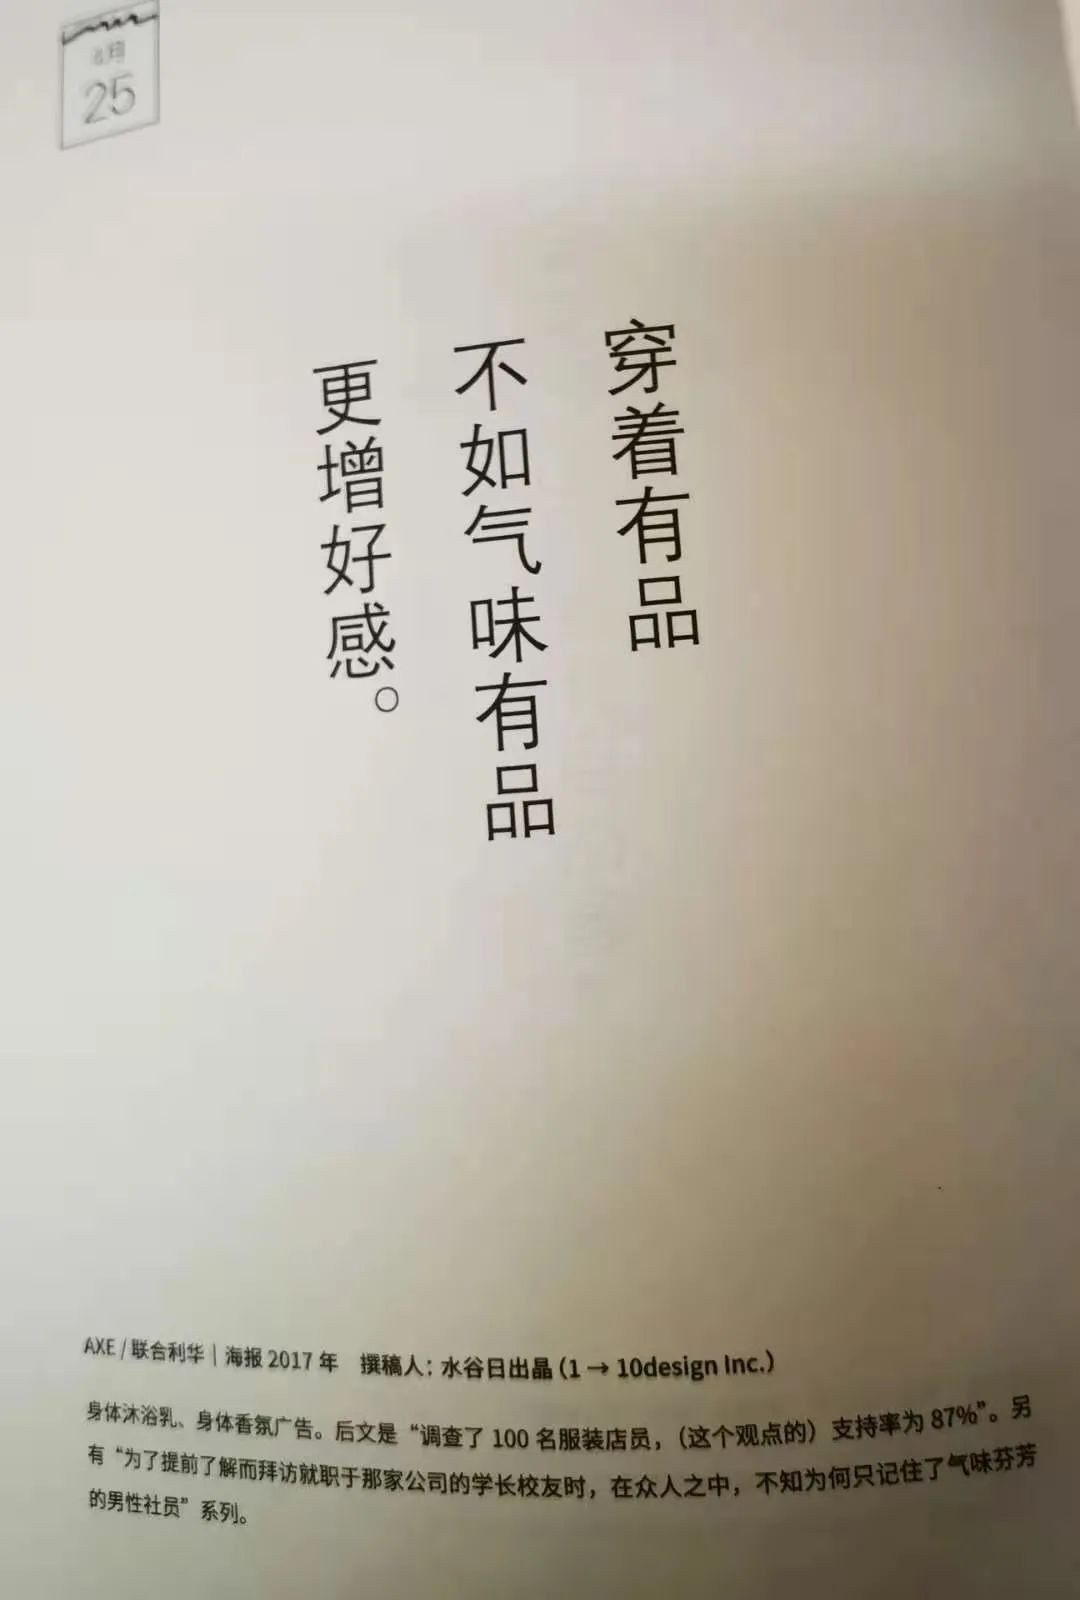 8月
25
穿着有品
不如气味有品
更增好感。
AXE / 联合利华｜海报 2017 年　撰稿人：水谷日出晶（1 → 10design Inc.）
身体沐浴乳、身体香氛广告。后文是“调查了 100 名服装店员，（这个观点的）支持率为 87%”。另
有“为了提前了解而拜访就职于那家公司的学长校友时，在众人之中，不知为何只记住了气味芬芳
的男性社员”系列。